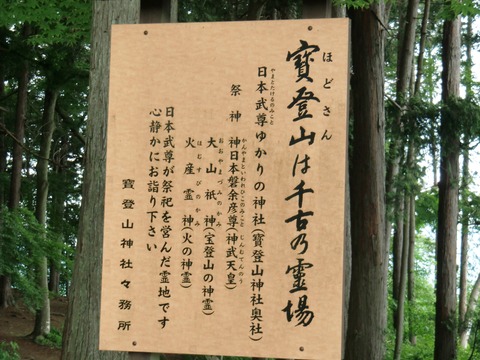 ほどさん
寶登山は千古乃靈場
やまとたけるのみこと
日本武尊ゆかりの神社(寶登山神社奥社)
かんやまといわれひこのみこと じんむてんのう
祭神 神日本磐余彦尊(神武天皇)
おおやまづみのかみ
大山祇神(宝登山の神霊)
ほむすびのかみ
火産霊神(火の神霊)
日本武尊が祭祀を営んだ霊地です
心静かにお詣り下さい
寶登山神社々務所